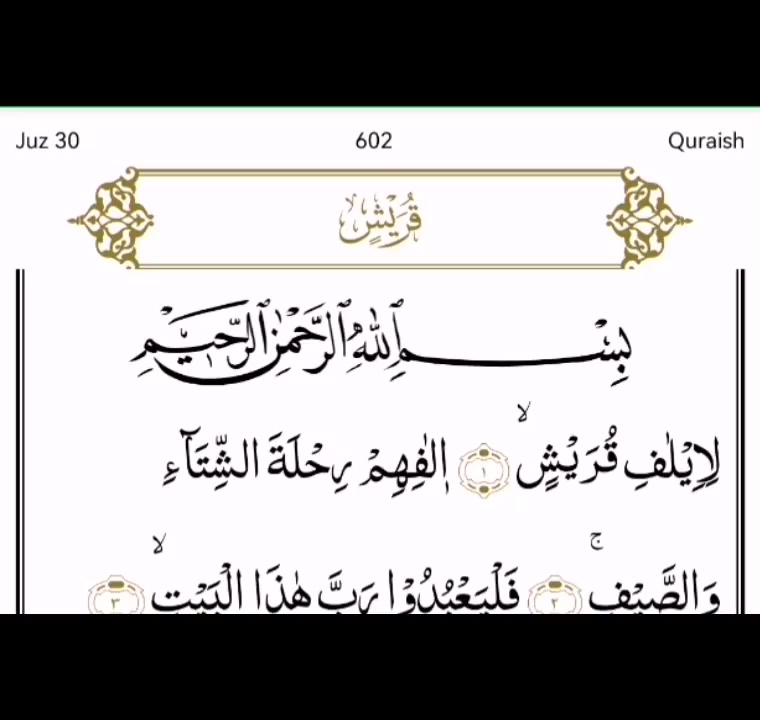 Juz 30 602 Quraish
قُرَيْشٍ
بِسْمِ اللّٰهِ الرَّحْمٰنِ الرَّحِيْمِ
لِاِيْلٰفِ قُرَيْشٍۙ ١ اٖلٰفِهِمْ رِحْلَةَ الشِّتَاۤءِ
وَالصَّيْفِۚ ٢ فَلْيَعْبُدُوْا رَبَّ هٰذَا الْبَيْتِۙ ٣